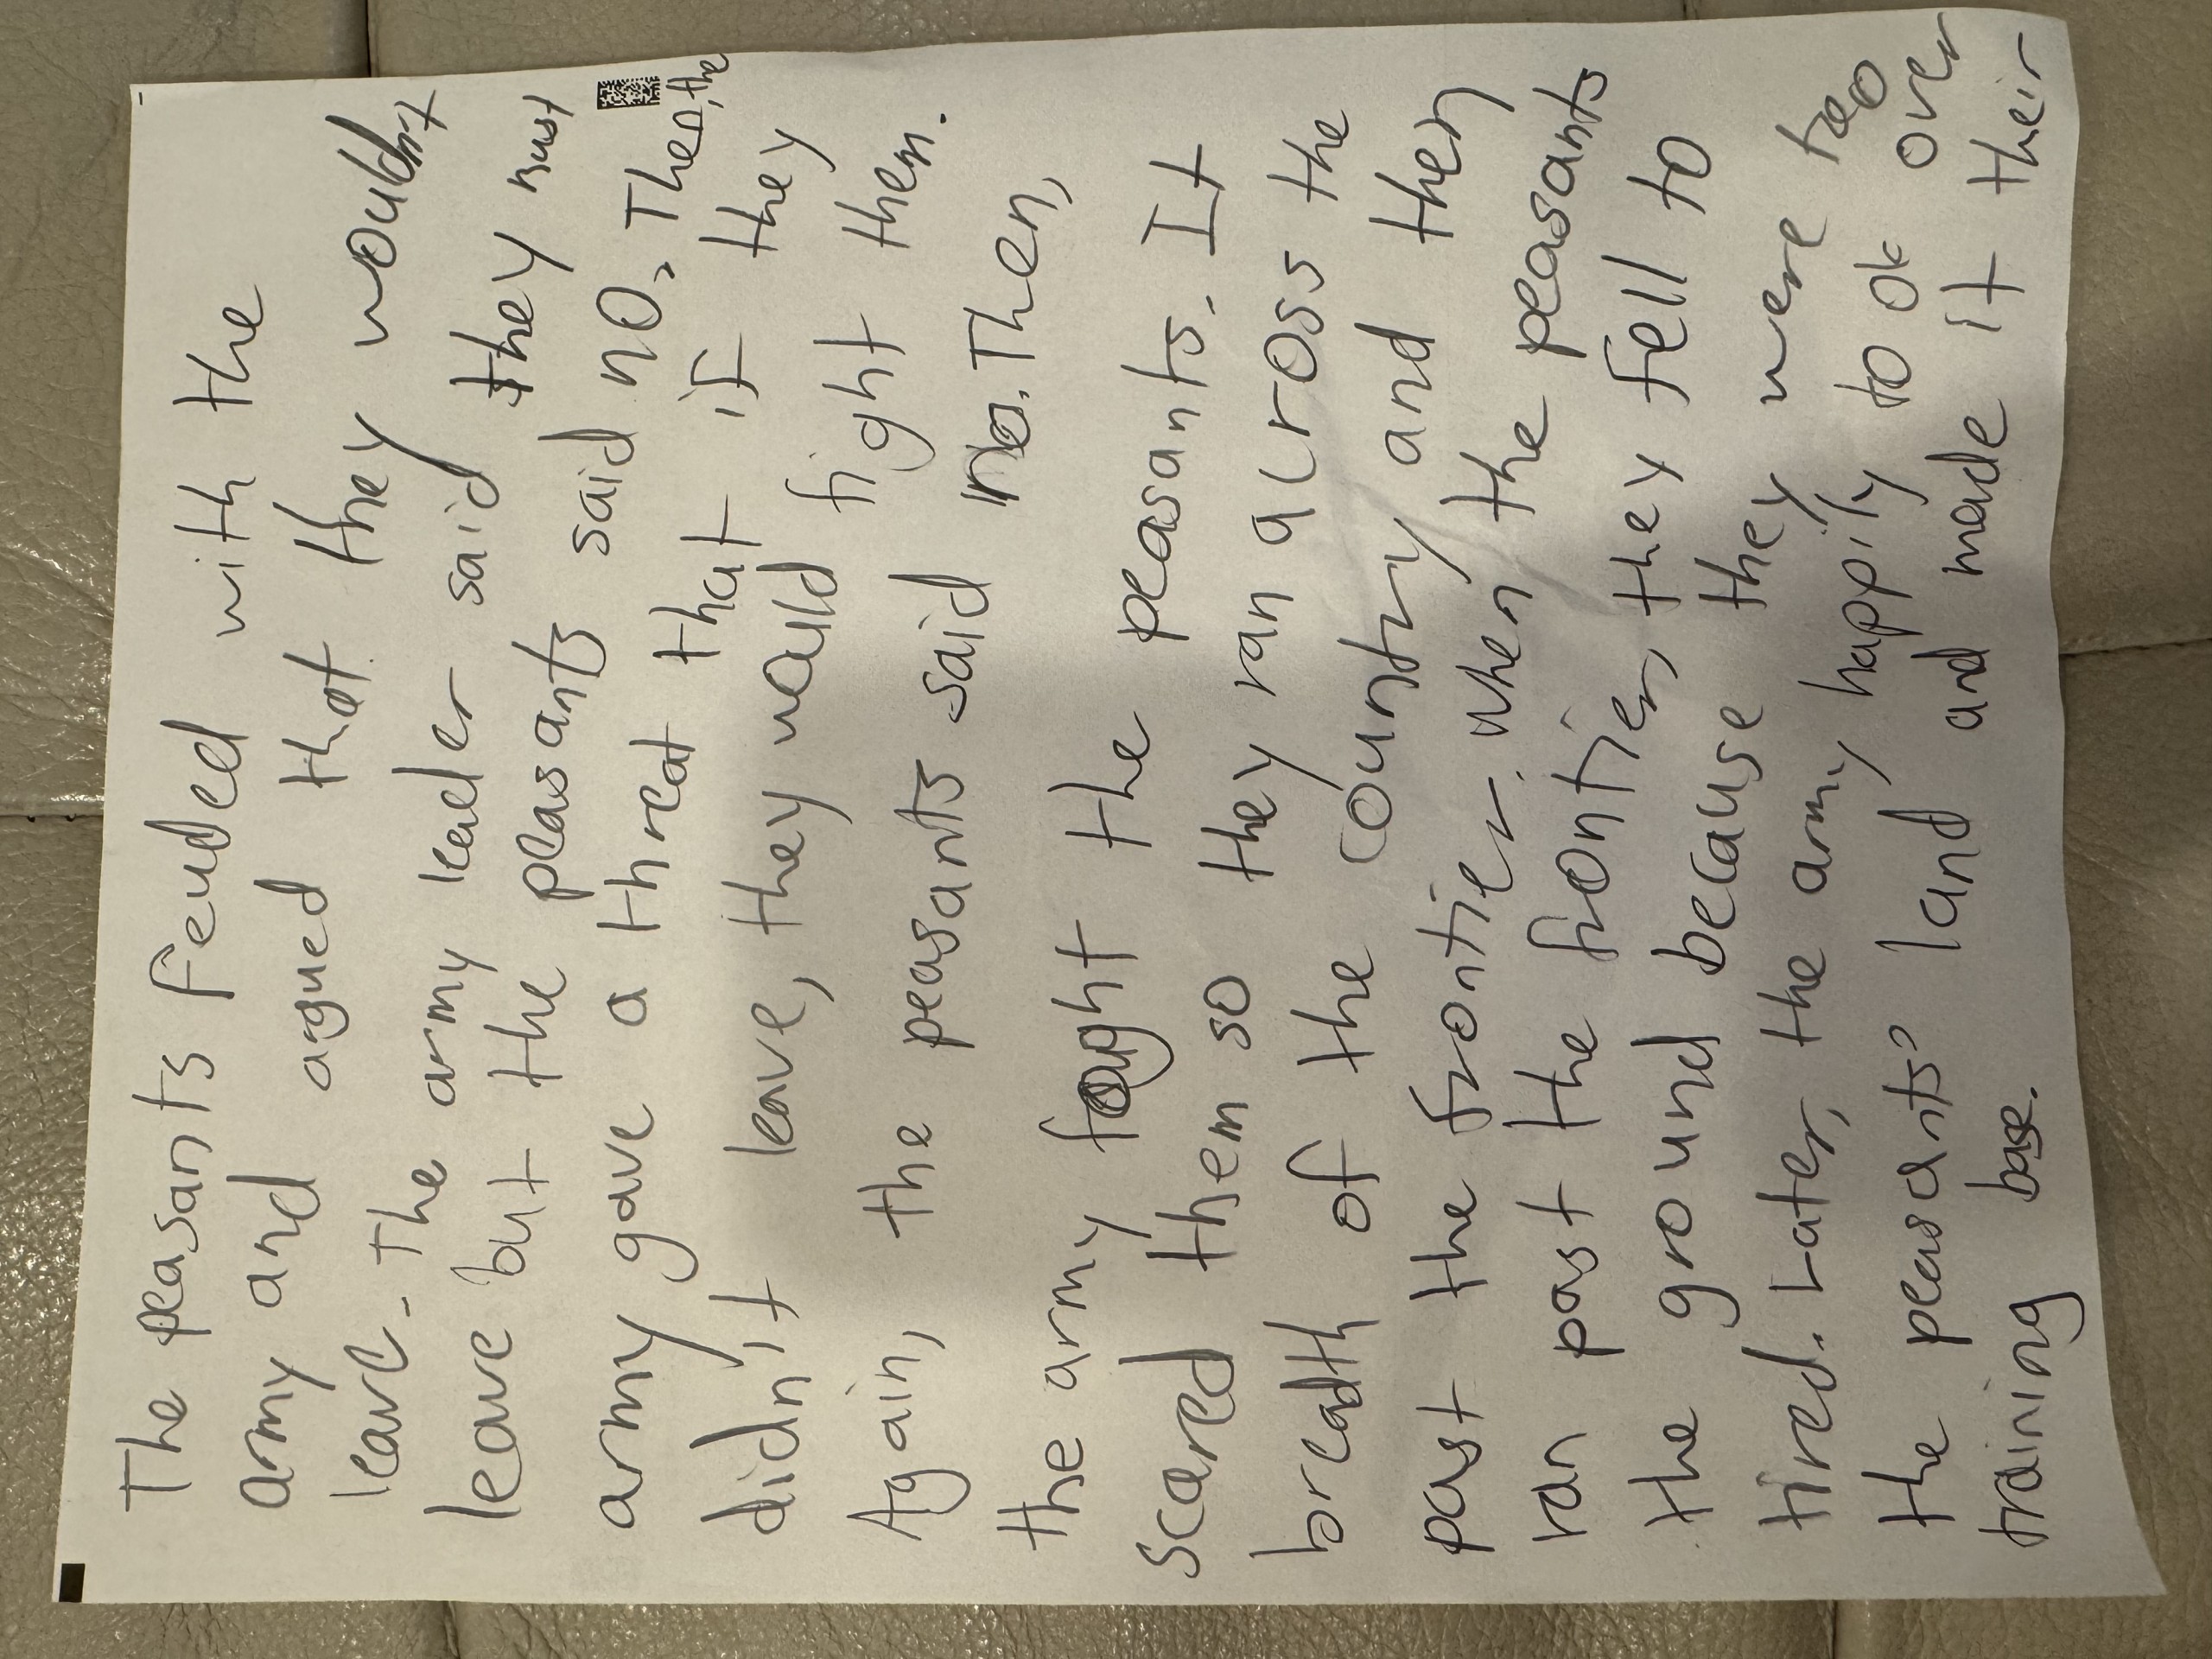 The peasants feuded with the
army and argued that they wouldn't
leave. The army leader said they must
leave but the peasants said no. Then, the
army gave a threat that if they
didn't leave, they would fight them.
Again, the peasants said no. Then,
the army fought the peasants. It
scared them so they ran across the
breadth of the country and then
past the frontier. When the peasants
ran past the frontier, they fell to
the ground because they were too
tired. Later, the army happily took over
the peasants' land and made it their
training base.